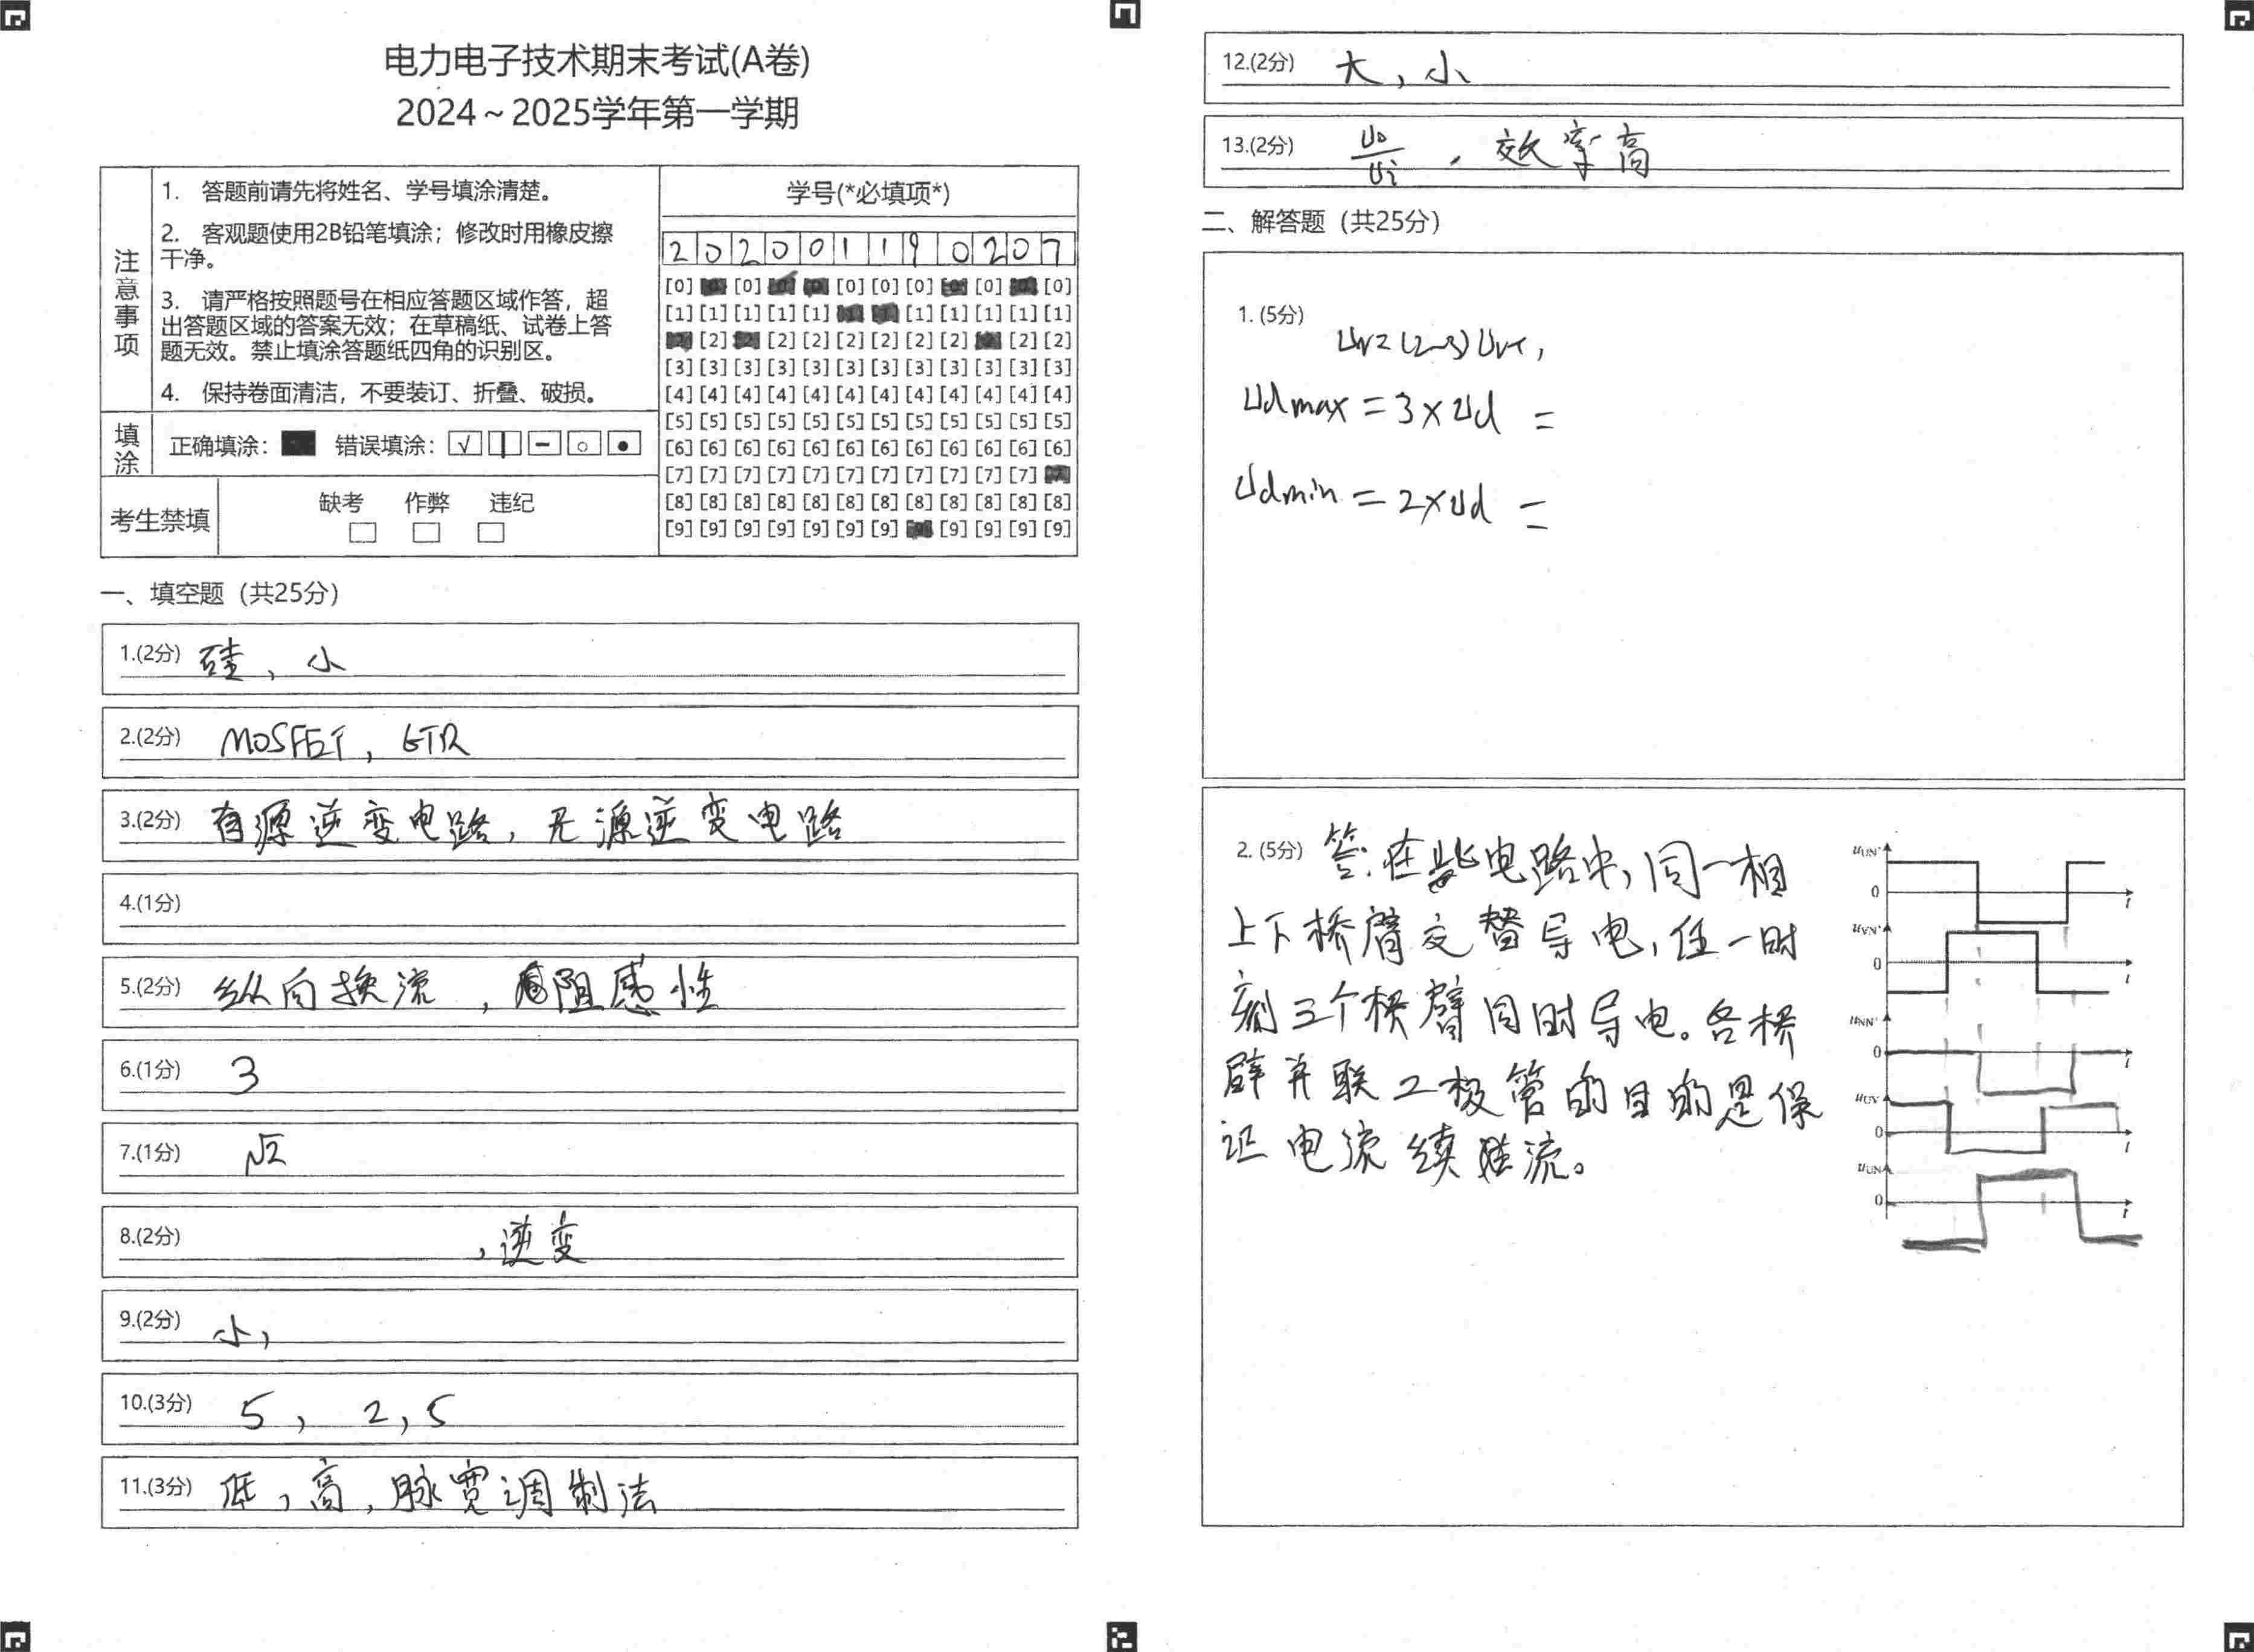 电力电子技术期末考试(A卷)
2024～2025学年第一学期
注意事项
1. 答题前请先将姓名、学号填涂清楚。
2. 客观题使用2B铅笔填涂；修改时用橡皮擦
干净。
3. 请严格按照题号在相应答题区域作答，超
出答题区域的答案无效；在草稿纸、试卷上答
题无效。禁止填涂答题纸四角的识别区。
4. 保持卷面清洁，不要装订、折叠、破损。
填涂
正确填涂： 错误填涂：
考生禁填
缺考 作弊 违纪
学号(*必填项*)
2 0 2 0 0 1 1 9 0 2 0 7
[0] [0] [0] [0] [0] [0] [0] [0] [0] [0] [0] [0]
[1] [1] [1] [1] [1] [1] [1] [1] [1] [1] [1] [1]
[2] [2] [2] [2] [2] [2] [2] [2] [2] [2] [2] [2]
[3] [3] [3] [3] [3] [3] [3] [3] [3] [3] [3] [3]
[4] [4] [4] [4] [4] [4] [4] [4] [4] [4] [4] [4]
[5] [5] [5] [5] [5] [5] [5] [5] [5] [5] [5] [5]
[6] [6] [6] [6] [6] [6] [6] [6] [6] [6] [6] [6]
[7] [7] [7] [7] [7] [7] [7] [7] [7] [7] [7] [7]
[8] [8] [8] [8] [8] [8] [8] [8] [8] [8] [8] [8]
[9] [9] [9] [9] [9] [9] [9] [9] [9] [9] [9] [9]
一、填空题（共25分）
1.(2分) 硅，小
2.(2分) MOSFET，GTR
3.(2分) 有源逆变电路，无源逆变电路
4.(1分)
5.(2分) 纵向换流，阻感性
6.(1分) 3
7.(1分) √2
8.(2分) ，逆变
9.(2分) 小，
10.(3分) 5，2，5
11.(3分) 低，高，脉宽调制法
12.(2分) 大，小
13.(2分) Uo/Ui，效率高
二、解答题（共25分）
1. (5分)
Udmax = 3×Ud =
Udmin = 2×Ud =
2. (5分) 答：在此电路中，同一相
上下桥臂交替导电，任一时
刻三个桥臂同时导电。各桥
臂并联二极管的目的是保
证电流续流。
uUN'
0
t
uVN'
0
t
uNN'
0
t
uUV
0
t
uUN
0
t